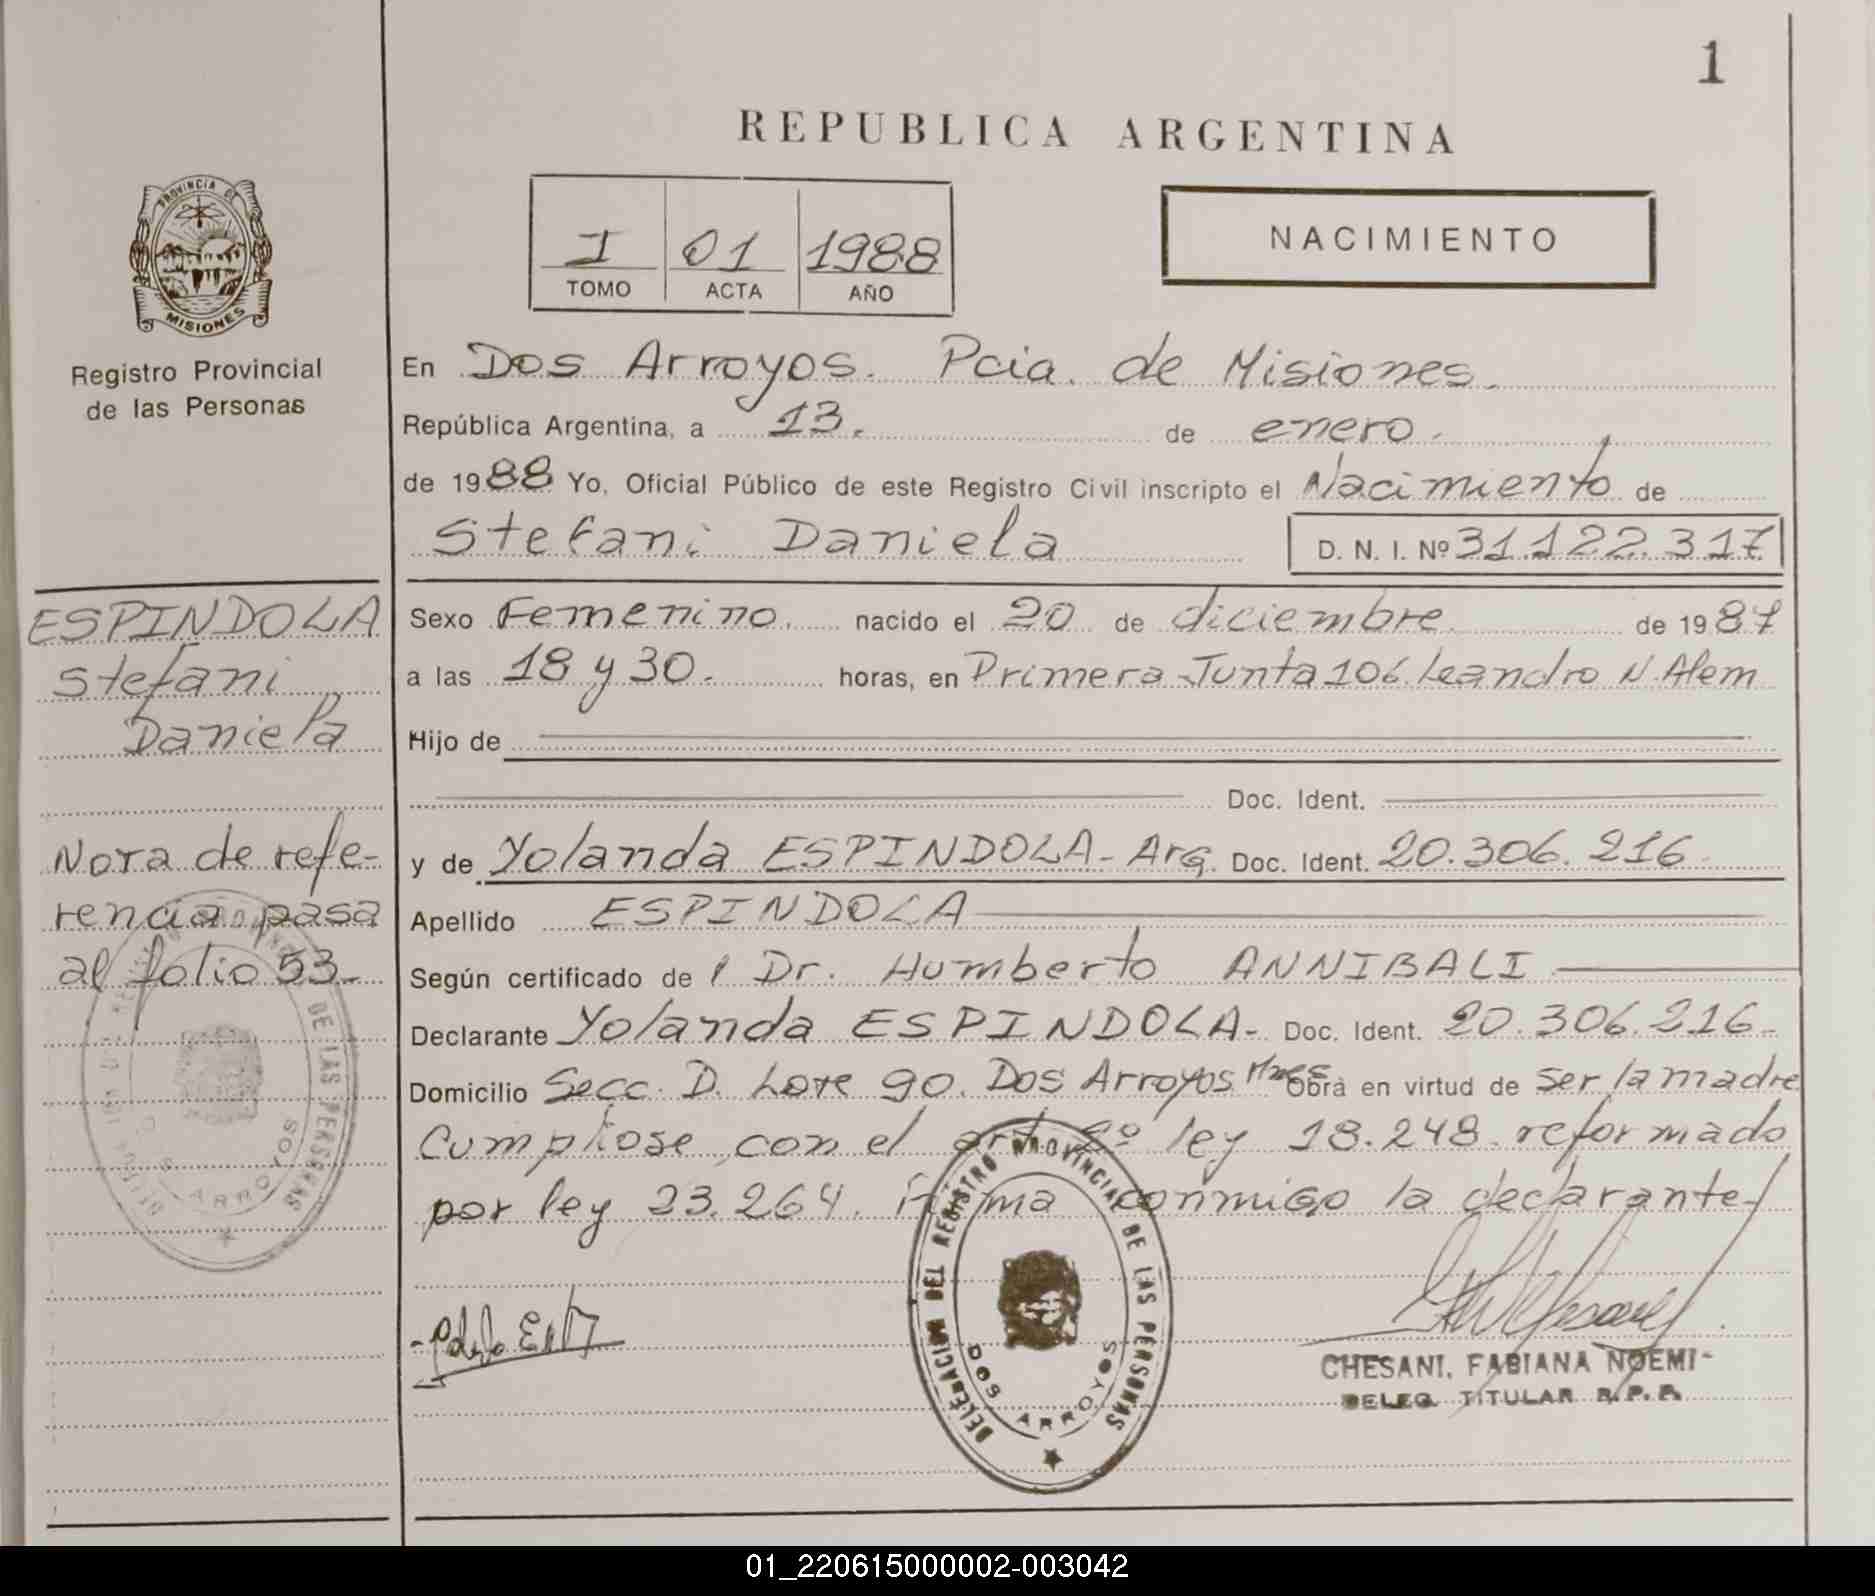 1
REPUBLICA ARGENTINA
I 01 1988
TOMO ACTA AÑO
NACIMIENTO
PROVINCIA DE
MISIONES
Registro Provincial
de las Personas
En Dos Arroyos. Pcia. de Misiones.
República Argentina, a 13. de enero.
de 1988 Yo, Oficial Público de este Registro Civil inscripto el Nacimiento de
Stefani Daniela D. N. I. Nº 31.122.317
ESPINDOLA
Stefani
Daniela
Nora de refe-
rencia pasa
al folio 53.-
Sexo Femenino. nacido el 20 de diciembre de 1987
a las 18 y 30. horas, en Primera Junta 106. Leandro N. Alem
Hijo de
Doc. Ident.
y de Yolanda ESPINDOLA- Arg. Doc. Ident. 20.306.216
Apellido ESPINDOLA
Según certificado de l Dr. Humberto ANNIBALI
Declarante Yolanda ESPINDOLA- Doc. Ident. 20.306.216-
Domicilio Secc. D. Lote 90. Dos Arroyos Mnes Obra en virtud de ser la madre
Cumpliose con el art 2º ley 18.248. reformado
por ley 23.264. Firma conmigo la declarante-
DELEGACION DEL REGISTRO PROVINCIAL DE LAS PERSONAS
DOS ARROYOS
DE LAS PERSONAS
ARROYOS
CHESANI, FABIANA NOEMI-
DELEG. TITULAR R.P.P.
01_220615000002-003042